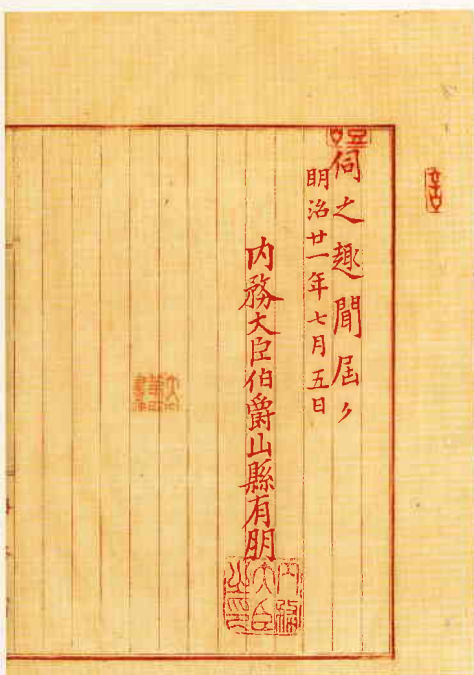 伺之趣聞届ク
明治廿一年七月五日
内務大臣伯爵山縣有朋
内務大臣之印